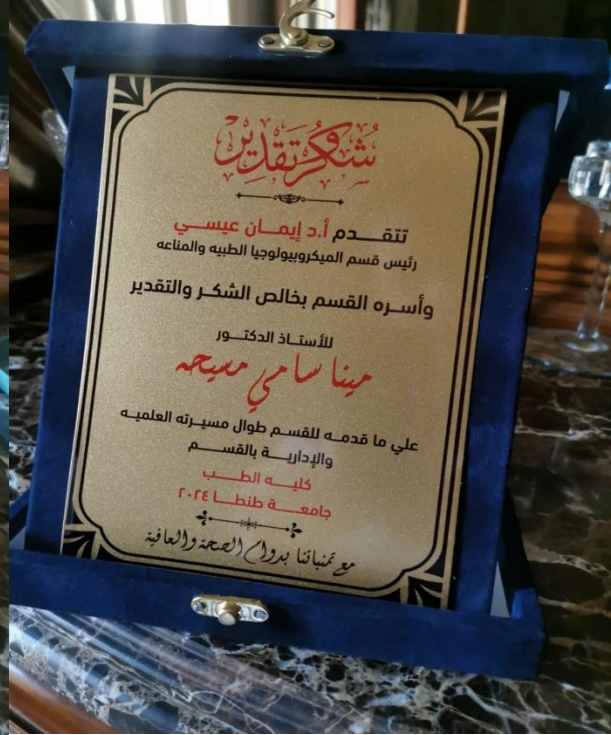 شكر وتقدير
تتقـــدم أ.د إيمــان عيســي
رئيس قسم الميكروبيولوجيا الطبيه والمناعه
وأسـره القسم بخالص الشكـر والتقدير
للأستـاذ الدكتــور
مينا سامي مسيحه
علي ما قدمـه للقسم طوال مسيـرته العلميـه
والإداريــة بالقســم
كليــه الطــب
جامعــة طنطــا ٢٠٢٤
مع تمنياتنا بدوام الصحة والعافية